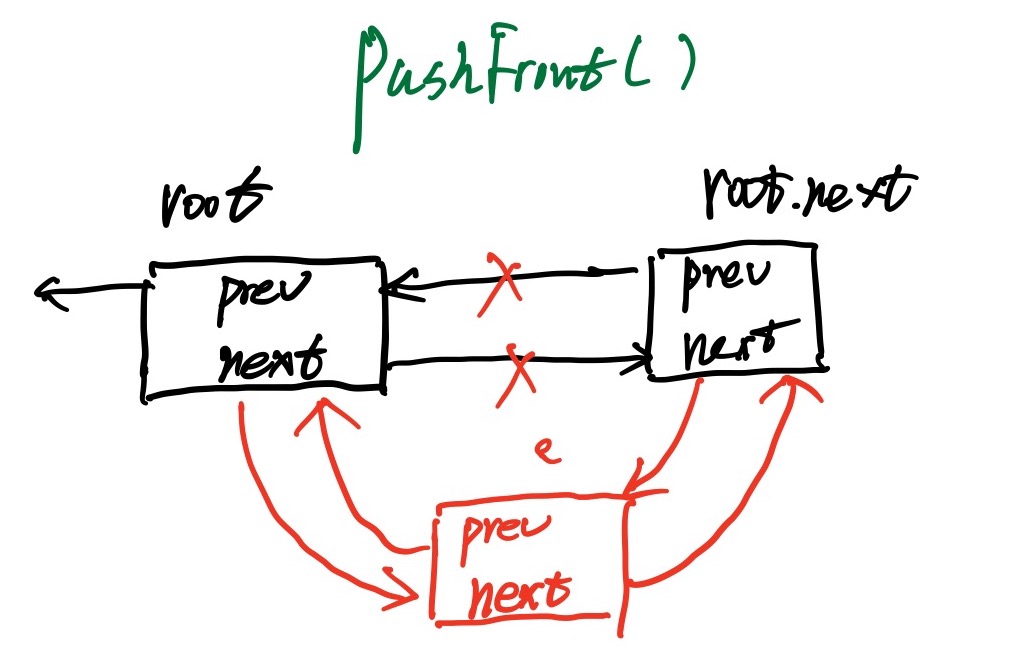 PushFront()
root
root.next
prev
next
prev
next
e
prev
next